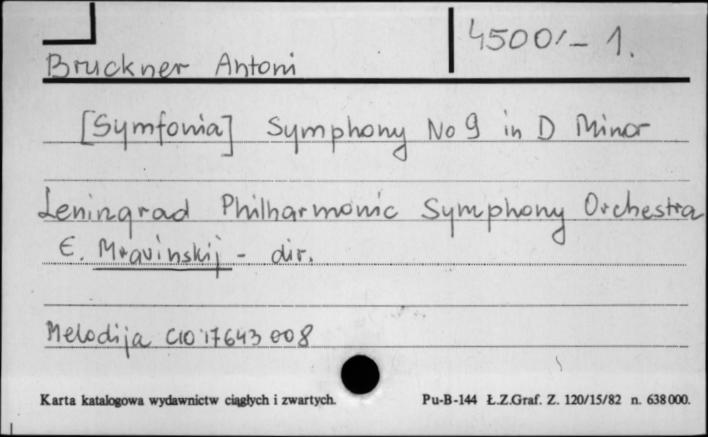 4500/- 1.
Bruckner Antoni
[Symfonia] Symphony No 9 in D Minor
Leningrad Philharmonic Symphony Orchestra
E. Mravinskij - dir.
Melodija C10 17643 008
Karta katalogowa wydawnictw ciągłych i zwartych. Pu-B-144 Ł.Z.Graf. Z. 120/15/82 n. 638000.